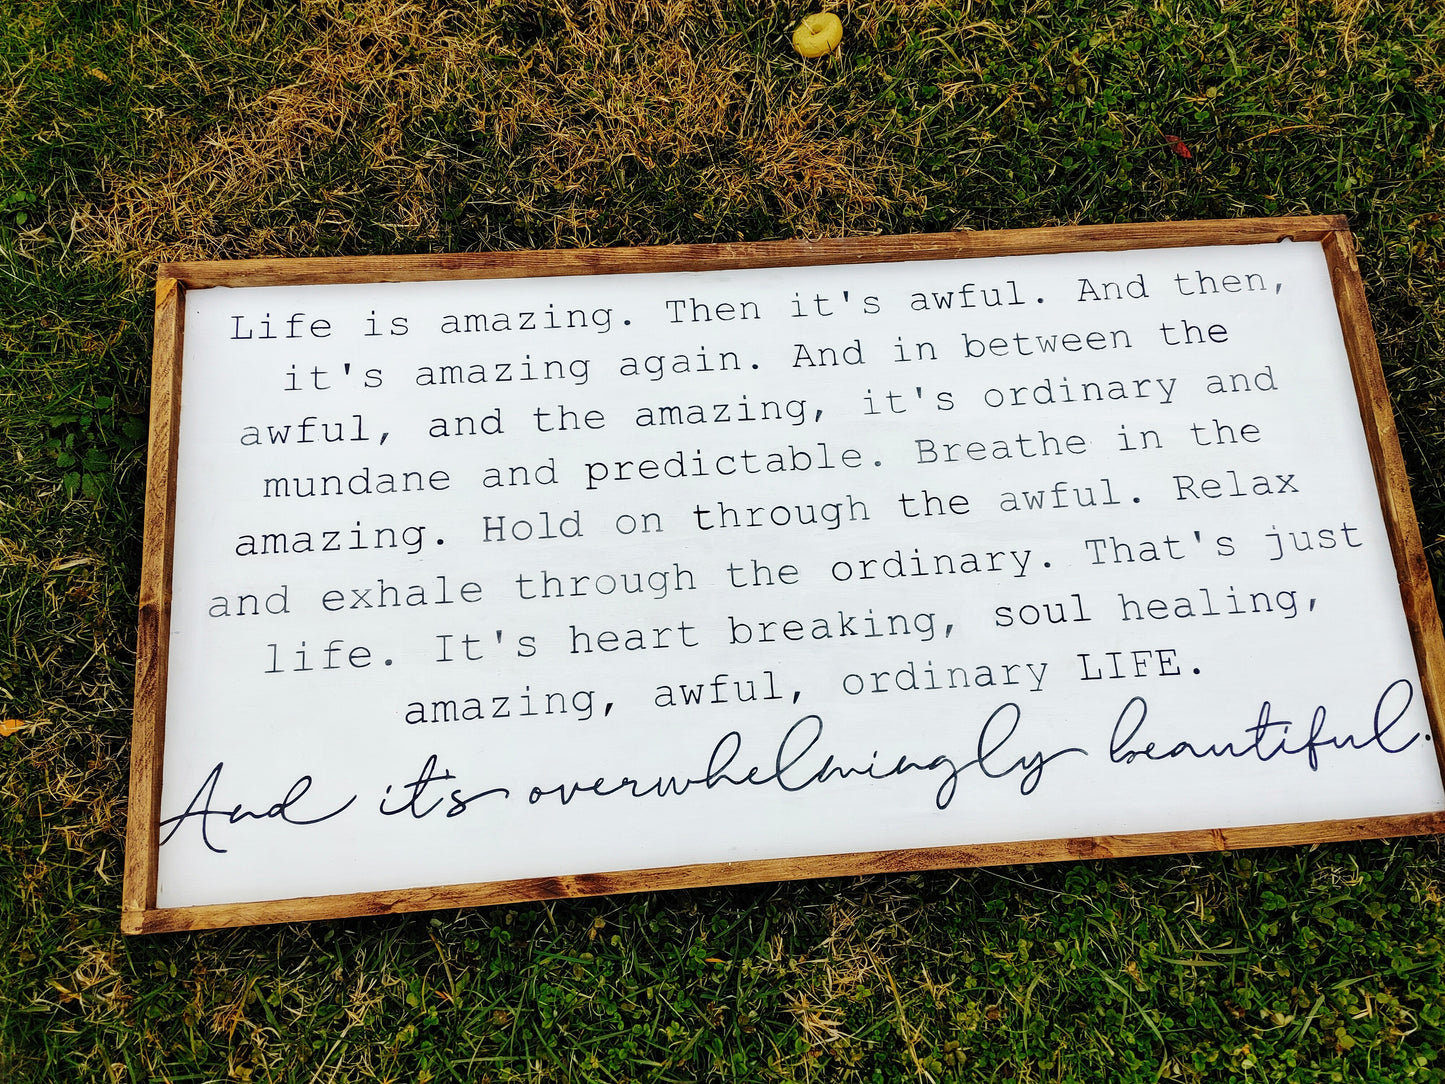 Life is amazing. Then it's awful. And then,
it's amazing again. And in between the
awful, and the amazing, it's ordinary and
mundane and predictable. Breathe in the
amazing. Hold on through the awful. Relax
and exhale through the ordinary. That's just
life. It's heart breaking, soul healing,
amazing, awful, ordinary LIFE.
And it's overwhelmingly beautiful.